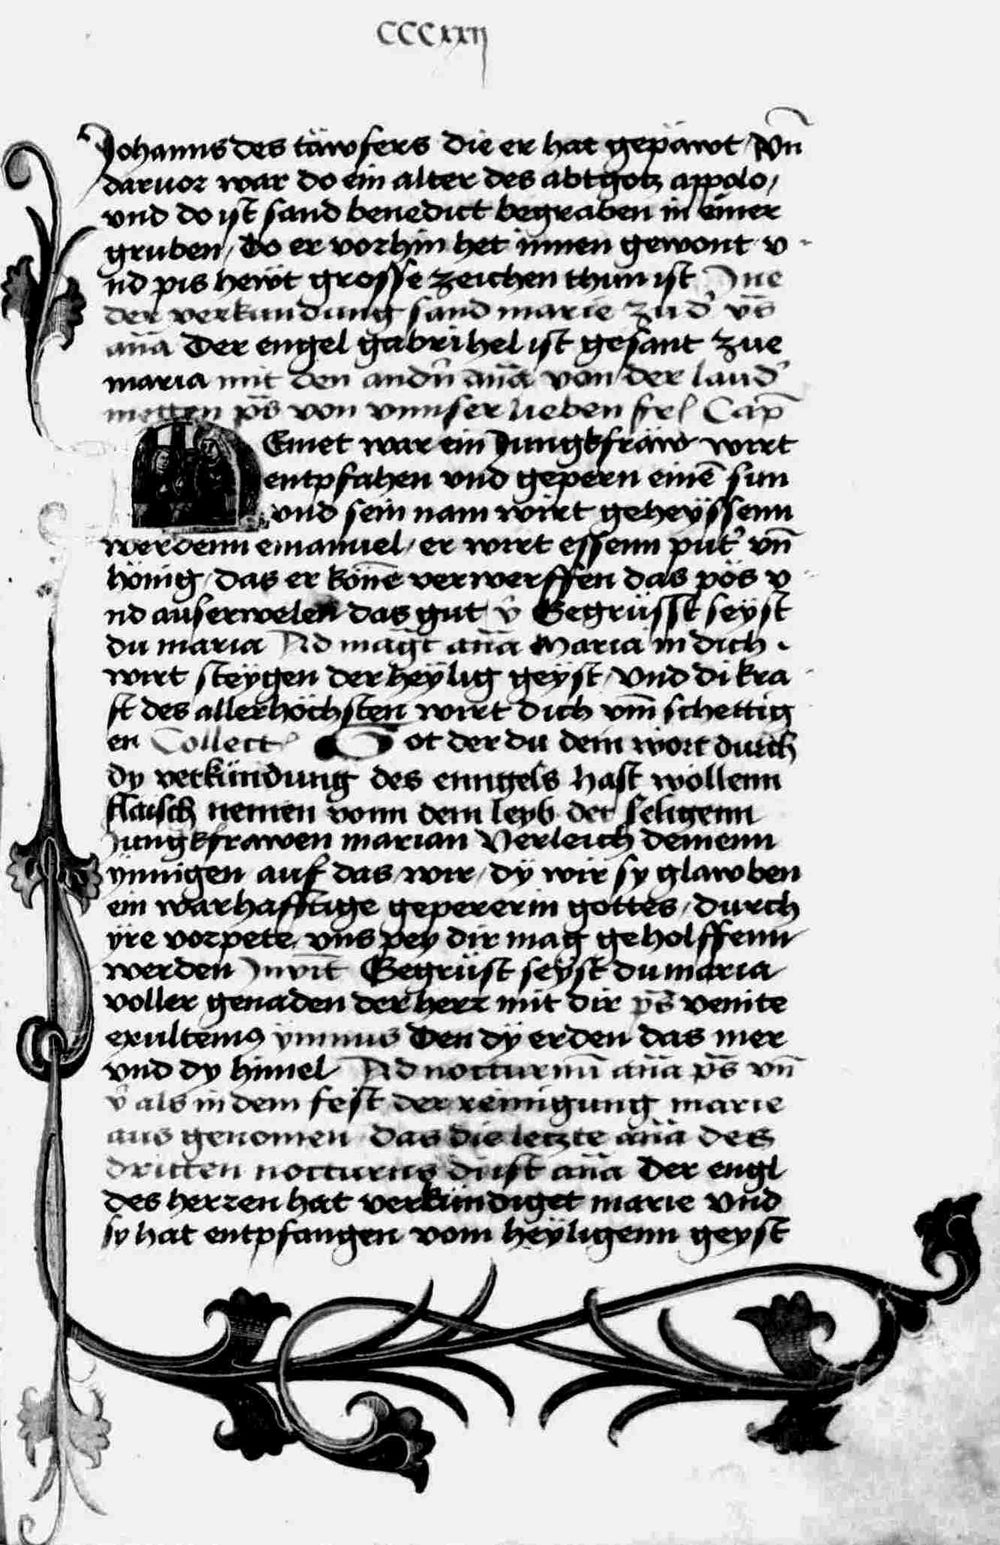 CCCxxij
Johanns des täwfers die er hat gepäwt Vn̄
daruor war do ein alter des abtgotz appolo,
vnd do ist sand benedict begraben in einer
gruben, do er vorhin het innen gewont v-
nd pis hewt grosse zeichen thun ist Jne
der verkundung sand marie zud' vs̄
ana̅ Der engel gabrihel ist gesant zue
maria mit den andn̄ ana̅ von der laud'
metten ps̄ von vnnser lieben fre Cap̄
Semet war ein Jungkfraw wirt
entpfahen vnd gepern eine̅ sun
vnd sein nam wirt geheyssenn
werdenn emanuel, er wirt essenn put' vn̄
hönig, das er köne̅ verwerffen das pös v-
nd auserwelen das gut v̄ Gegrüsst seÿst
du maria Ad magt̄ ana̅ Maria in dich
wirt steÿgen der heÿlig geÿst, Vnd di kra
ft des allerhöchsten wirt dich vm̄schettig
en Collect Got der du dein wort durch
dy verkündung des enngels hast wöllenn
flaisch nemen vonn dem leyb der seligenn
Jungkfrawen marian Verleich deinenn
ynnigen auf das, wir, dÿ wir sy glawben
ein warhafftige gepererin gottes, durch
ÿre vorpete, vns pey dir mag geholffenn
werden Jnuit̄ Gegrüst seÿst du maria
voller genaden der herr mit dir ps̄ venite
exultemus ymnus Den dÿ erden das mer
vnd dy himel Ad nocturnu̅ ana̅ ps̄ vn̄
v̄ als in dem fest der reinigung marie
aus genomen das die letzte ana̅ des
dritten nocturns dinst ana̅ Der engl
des herren hat verkündiget marie vnd
sy hat entpfangen vom heÿligenn geyst